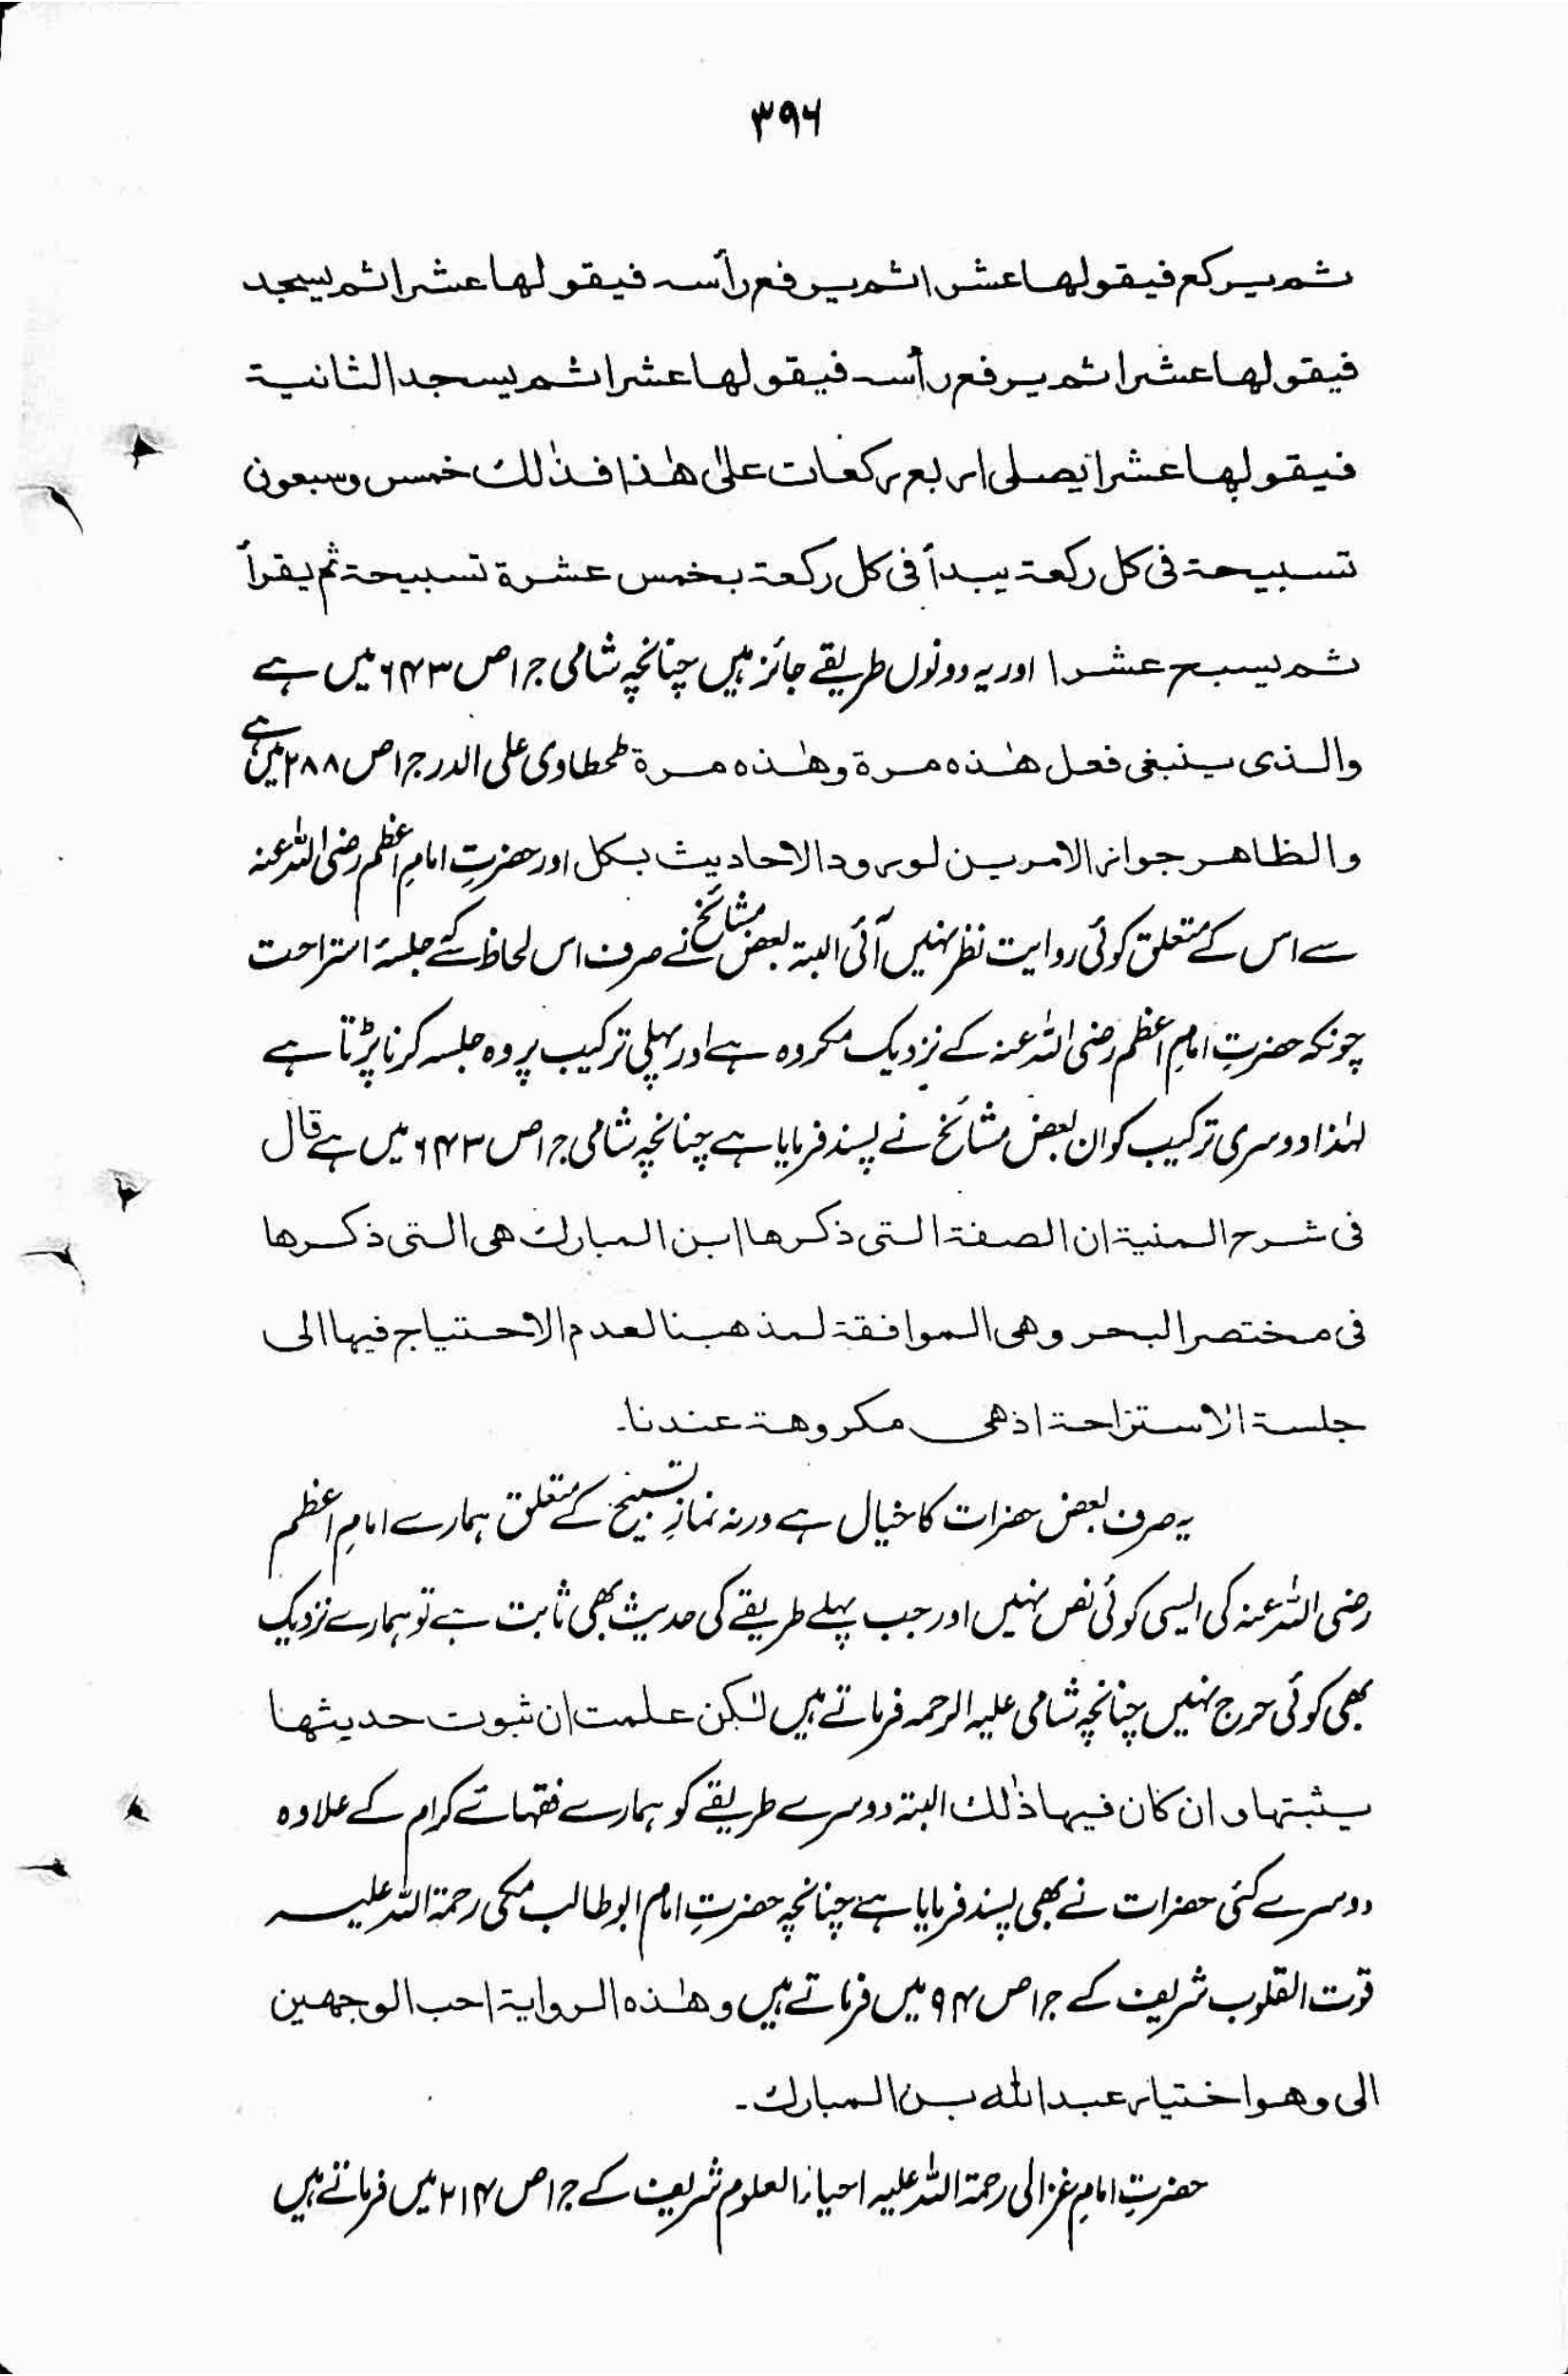 ۳۹۶
ثم يركع فيقولها عشرا ثم يرفع رأسه فيقولها عشرا ثم يسجد
فيقولها عشرا ثم يرفع رأسه فيقولها عشرا ثم يسجد الثانية
فيقولها عشرا يصلى اربع ركعات علىٰ هٰذا فذٰلك خمس وسبعون
تسبيحة فى كل ركعة يبدأ فى كل ركعة بخمس عشرة تسبيحة ثم يقرأ
ثم يسبح عشرا اور یہ دونوں طریقے جائز ہیں چنانچہ شامی ج۱ ص ۶۴۳ میں ہے
والذى ينبغى فعل هٰذه مرة وهٰذه مرة طحطاوی علی الدر ج۱ ص ۲۸۸ میں ہے
والظاهر جواز الامرين لورود الاحاديث بكل اور حضرتِ امامِ اعظم رضی اللہ عنہ
سے اس کے متعلق کوئی روایت نظر نہیں آئی البتہ بعض مشائخ نے صرف اس لحاظ سے کہ جلسۂ استراحت
چونکہ حضرتِ امامِ اعظم رضی اللہ عنہ کے نزدیک مکروہ ہے اور پہلی ترکیب پر وہ جلسہ کرنا پڑتا ہے
لہٰذا دوسری ترکیب کو ان بعض مشائخ نے پسند فرمایا ہے چنانچہ شامی ج۱ ص ۶۴۳ میں ہے قال
فى شرح المنية ان الصفة التى ذكرها ابن المبارك هى التى ذكرها
فى مختصر البحر وهى الموافقة لمذهبنا لعدم الاحتياج فيها الى
جلسة الاستراحة اذهى مكروهة عندنا۔
یہ صرف بعض حضرات کا خیال ہے ورنہ نمازِ تسبیح کے متعلق ہمارے امامِ اعظم
رضی اللہ عنہ کی ایسی کوئی نص نہیں اور جب پہلے طریقے کی حدیث بھی ثابت ہے تو ہمارے نزدیک
بھی کوئی حرج نہیں چنانچہ شامی علیہ الرحمہ فرماتے ہیں لٰكن علمت ان ثبوت حديثها
يثبتها و ان كان فيها ذٰلك البتہ دوسرے طریقے کو ہمارے فقہائے کرام کے علاوہ
دوسرے کئی حضرات نے بھی پسند فرمایا ہے چنانچہ حضرتِ امام ابوطالب مکی رحمۃ اللہ علیہ
قوت القلوب شریف کے ج۱ ص ۹۴ میں فرماتے ہیں وهٰذه الرواية احب الوجهين
الى وهو اختيار عبد الله بن المبارك۔
حضرتِ امامِ غزالی رحمۃ اللہ علیہ احیاء العلوم شریف کے ج۱ ص ۲۱۴ میں فرماتے ہیں